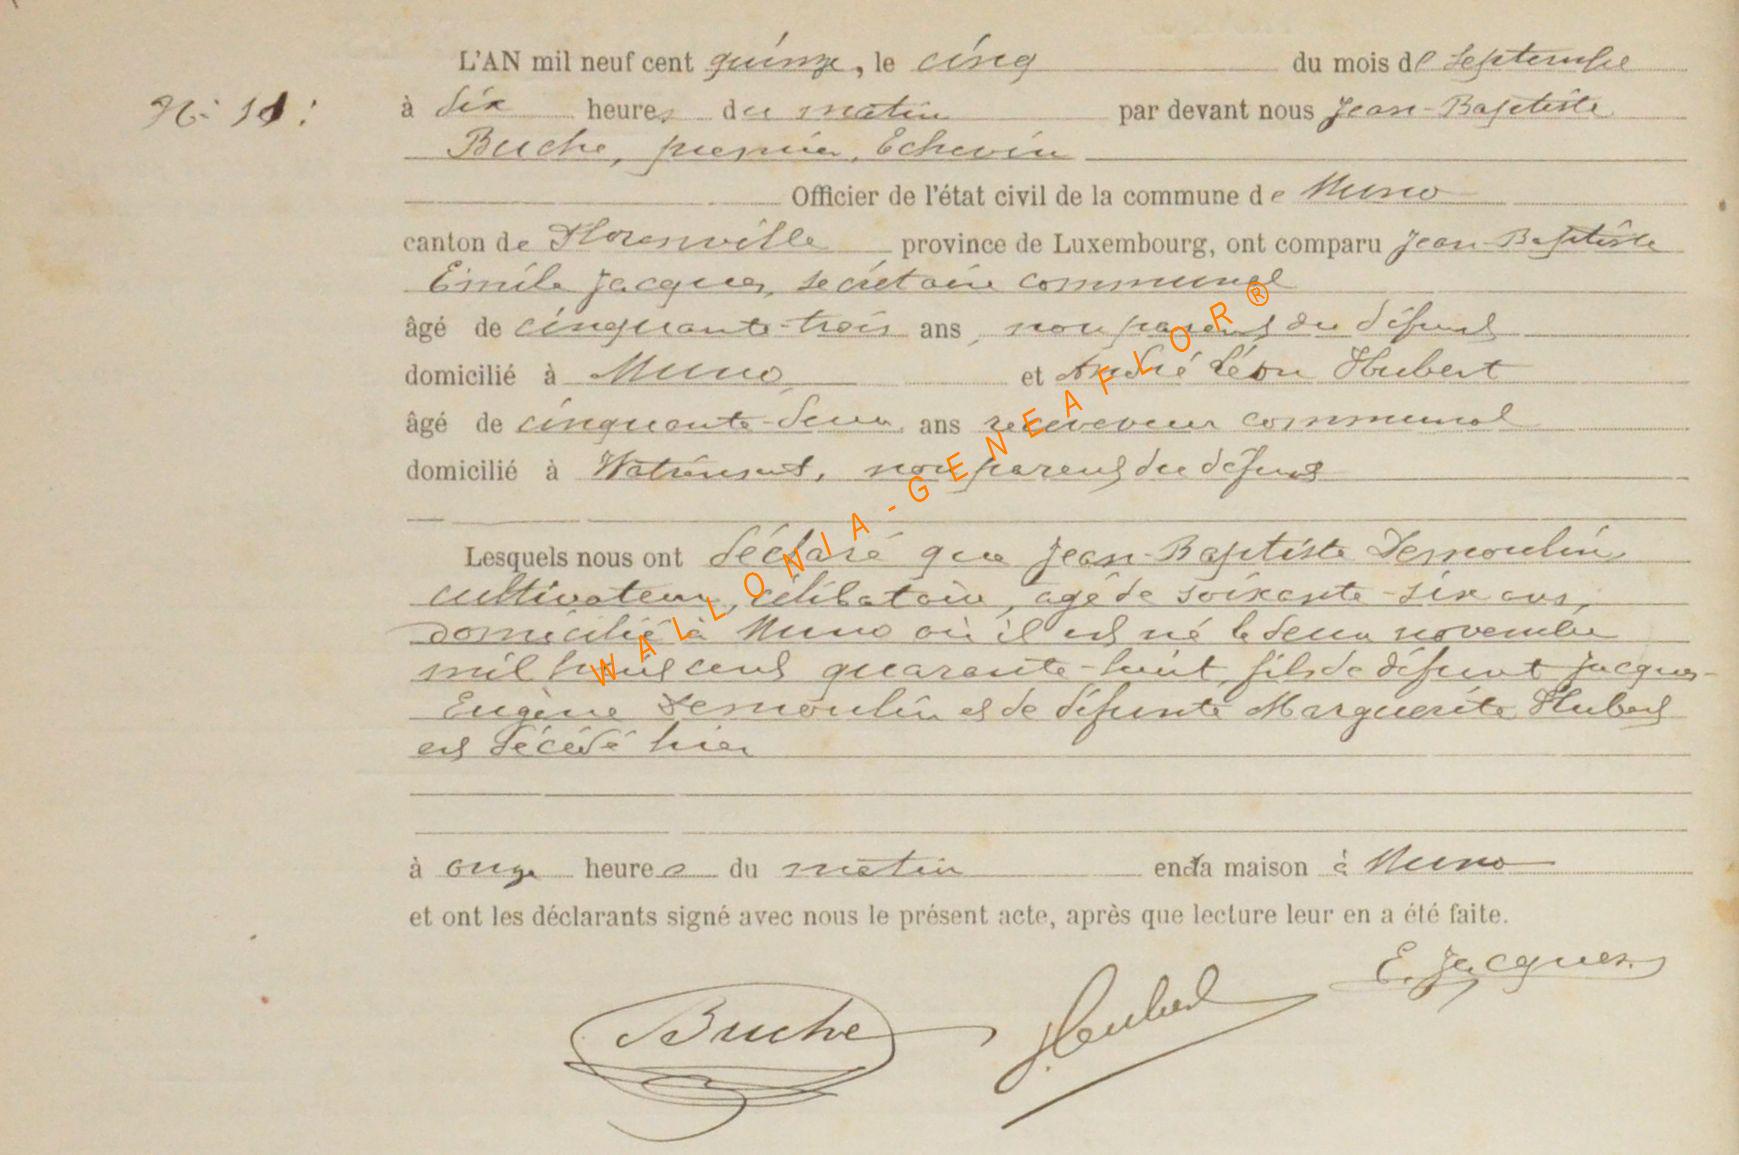 L'AN mil neuf cent quinze, le cinq du mois de Septembre
N° 11 :
à six heures du matin par devant nous Jean-Baptiste
Buche, premier Echevin
Officier de l'état civil de la commune de Muno
canton de Florenville province de Luxembourg, ont comparu Jean-Baptiste
Emile Jacques, secrétaire communal
âgé de cinquante-trois ans, non parent du défunt
domicilié à Muno et André Léon Hubert
âgé de cinquante-deux ans receveur communal
domicilié à Watrinsart, non parent du défunt
Lesquels nous ont déclaré que Jean-Baptiste Demoulin
cultivateur, célibataire, âgé de soixante-six ans,
domicilié à Muno où il est né le deux novembre
mil huit cent quarante-huit, fils de défunt Jacques-
Eugène Demoulin et de défunte Marguerite Hubert
est décédé hier
à onze heures du matin en sa maison à Muno
et ont les déclarants signé avec nous le présent acte, après que lecture leur en a été faite.
E. Jacques
Buche Hubert
WALLONIA-GENEAFLOR®